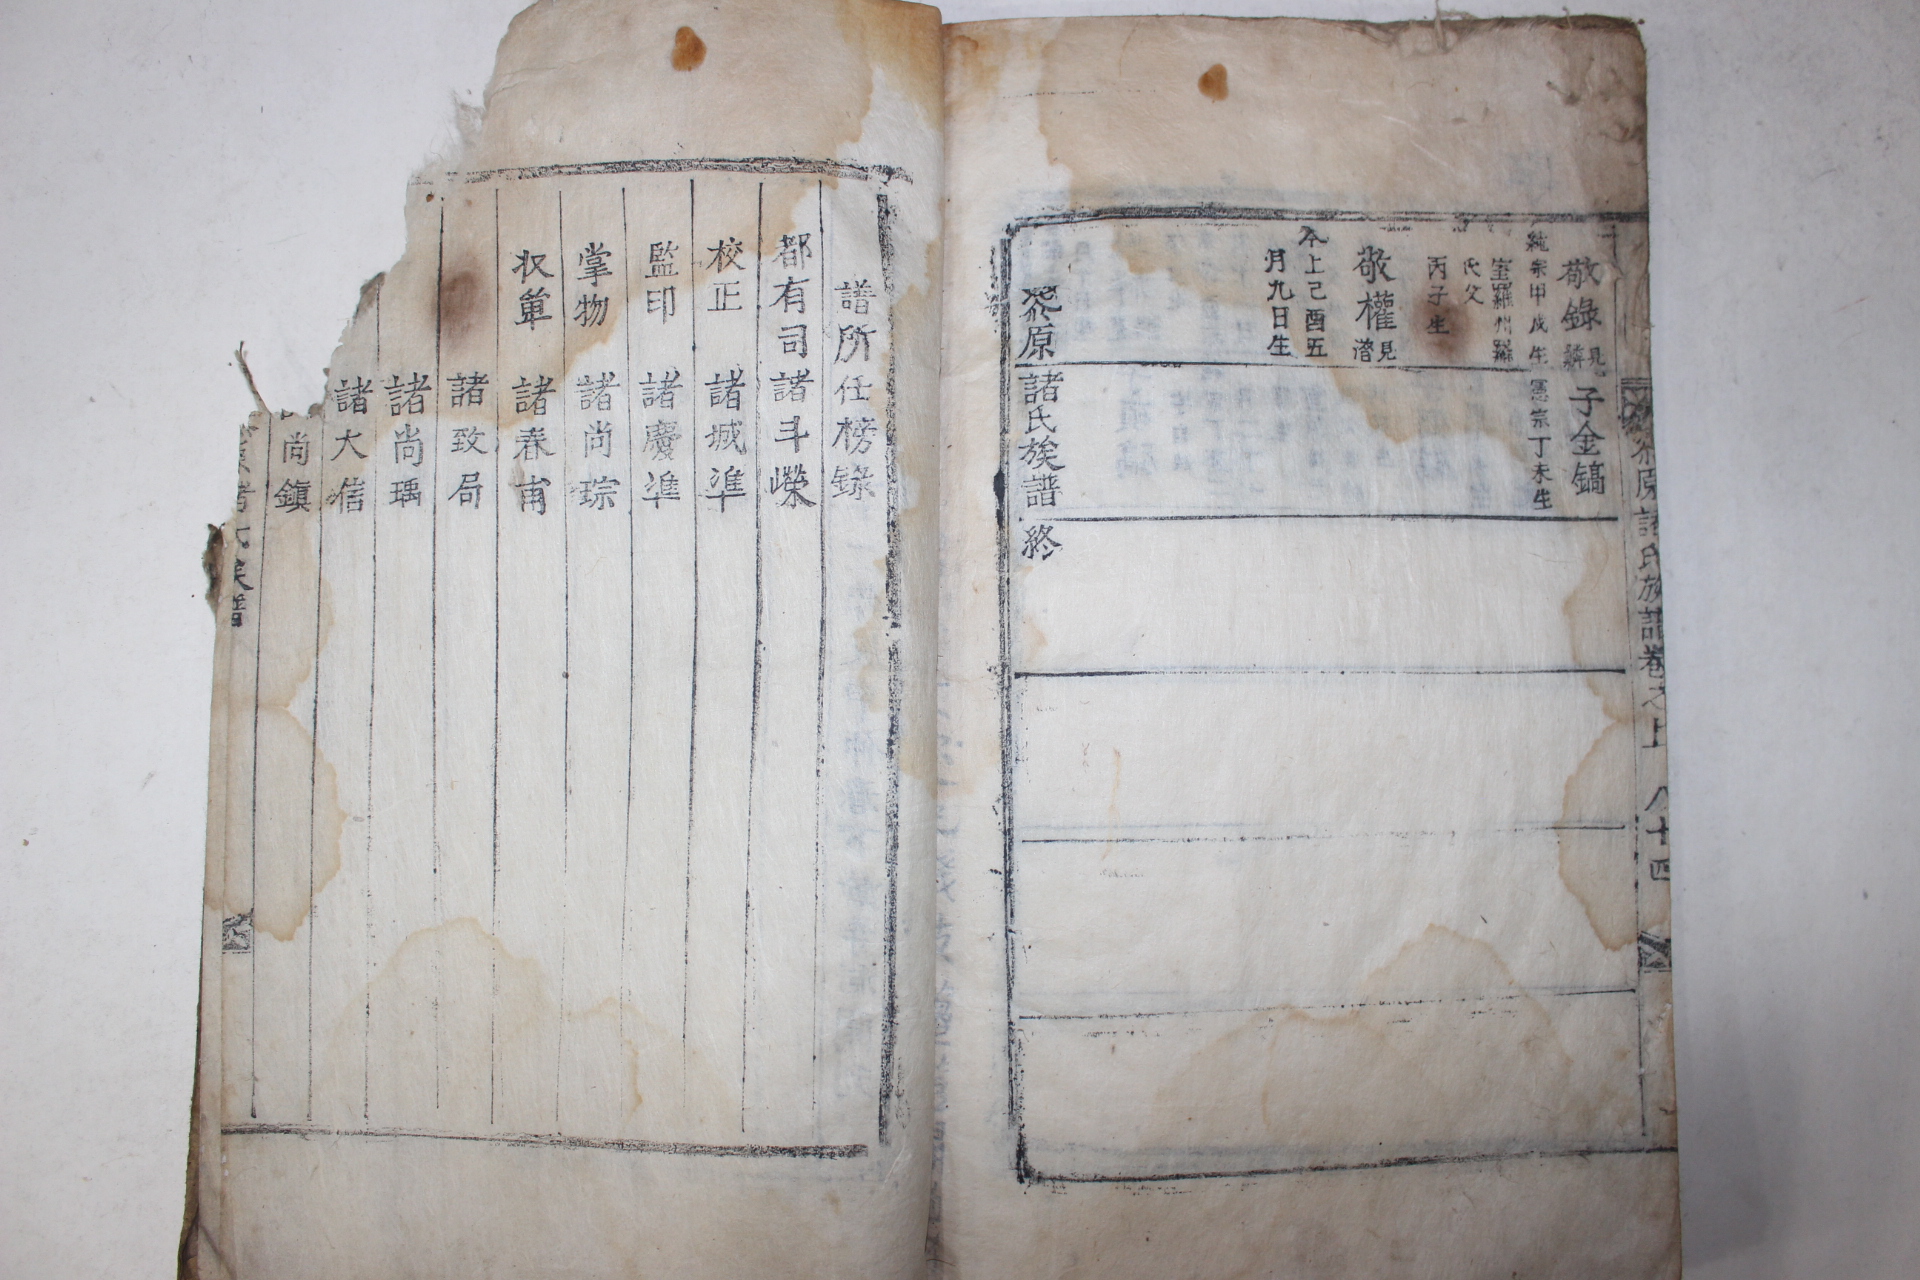 敬錄見譜
純宗甲戌生
室羅州羅
氏父
丙子生
敬權見譜
今上己酉五
月九日生
子金鎬
憲宗丁未生
原諸氏族譜終
原諸氏族譜卷之上 八十四
譜所任榜錄
都有司 諸斗嶸
校正 諸城準
監印 諸慶準
掌物 諸尚琮
収單 諸春甫
諸致局
諸尚瑀
諸大信
尚鎭
氏族譜